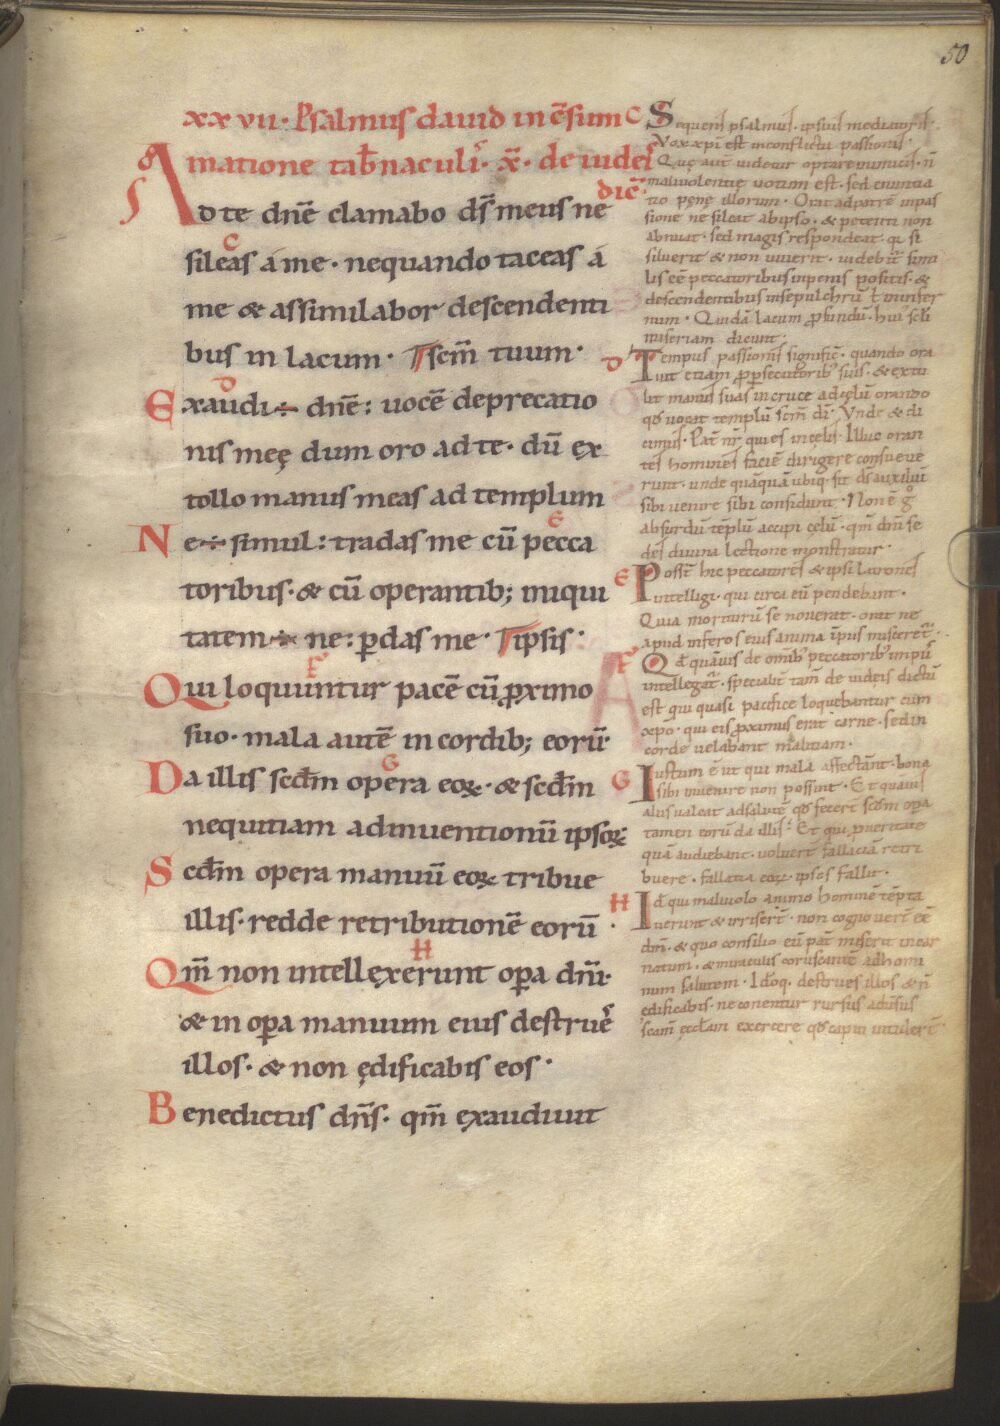 50
xxvii· Psalmus dauid in c̄sum
matione tab̄naculi· x̄· de iudei
dic̄·
Ad te dn̄e clamabo ds̄ meus ne
sileas á me· nequando taceas á
me & assimilabor descendenti
bus in lacum· sc̄m tuum·
Exaudi ÷ dn̄e: uocē deprecatio
nis meę dum oro ad te· dū ex
tollo manus meas ad templum
Ne ÷ simul: tradas me cū pecca
toribus· & cū operantib; iniqui
tatem ÷ ne: ꝑdas me· ipsis·
Qui loquuntur pacē cū ꝓximo
suo· mala autē in cordib; eorū·
Da illis scđm opera eoꝝ· & scđm
nequitiam adinuentionū ipsoꝝ
Scđm opera manuū eoꝝ tribue
illis· redde retributionē eorū·
Qm̄ non intellexerunt oꝑa dn̄i·
& in oꝑa manuum eius destruē
illos· & non ędificabis eos·
Benedictus dn̄s· qm̄ exaudiuit
C Sequens psalmus· ipsius mediatoris·
Vox xp̄i est in conflictu passionis·
Quę aut̄ uidetur optare inimicis· n̄
maliuolentię uotum est· sed enuntia
tio penę illorum· Orat ad patrē in pas
sione ne sileat ab ipso· & petenti non
abnuat· sed magis respondeat· q̄a si
siluerit & non uiuerit· uidebit̄ simi
lis eē peccatoribus in penis positis· &
descendentibus in sepulchrū ł infer
num· Quidā lacum ꝓfundū· hui᾽ sc̄li
miseriam dicunt·
D Tempus passionis signific̄· quando ora
uit etiam ꝓ ꝑsecutorib᾽ suis· & exten
dit manus suas in cruce ad cęlū orando
qđ uocat templū sc̄m dī· Vnde & di
cimus· Pat̄ nr̄ qui es in celis· Illuc oran
tes homines faciē dirigere consueue
runt· unde quāquā ubiq· sit ds̄ auxiliū
sibi uenire sibi confidunt· Non ē g̊
absurdū tēplū accipi cęlū· qm̄ dn̄i se
des diuina lectione monstratur·
E Posst̄ hic peccatores & ipsi latrones
intelligi· qui circa eū pendebant·
Quia moriturū se nouerat· orat ne
apud inferos eius anima īpiis misceret̄·
F Qđ quāuis de omīb᾽ peccatorib᾽ impiis
intellegat̄· specialit̄ tam̄ de iudeis dictū
est qui quasi pacifice loquebantur cum
xp̄o· qui eis ꝓximus erat carne· sed in
corde uelabant malitiam·
G Iustum ē ut qui mala affectānt· bona
sibi inuenire non possint· Et quāuis
aliis ualeat ad salutē qđ fecert̄ scđm oꝑa
tamen eorū da illis· Et qui ꝑ ueritatē
quā audiebant· uoluert̄ fallaciā retri
buere· fallatia eoꝝ ipsos fallit·
H Id qui maliuolo animo hominē tēpta
uerunt & irrisert̄· non cognouert̄ eē
dm̄· & quo consilio eū pat̄ miserit incar
natum· & miraculis coruscantē ad homi
num salutem· Idoq· destrues illos & n̄
edificabis· ne conentur rursus aduersus
sc̄am ęccłam exercere qđ capiti intulert̄·